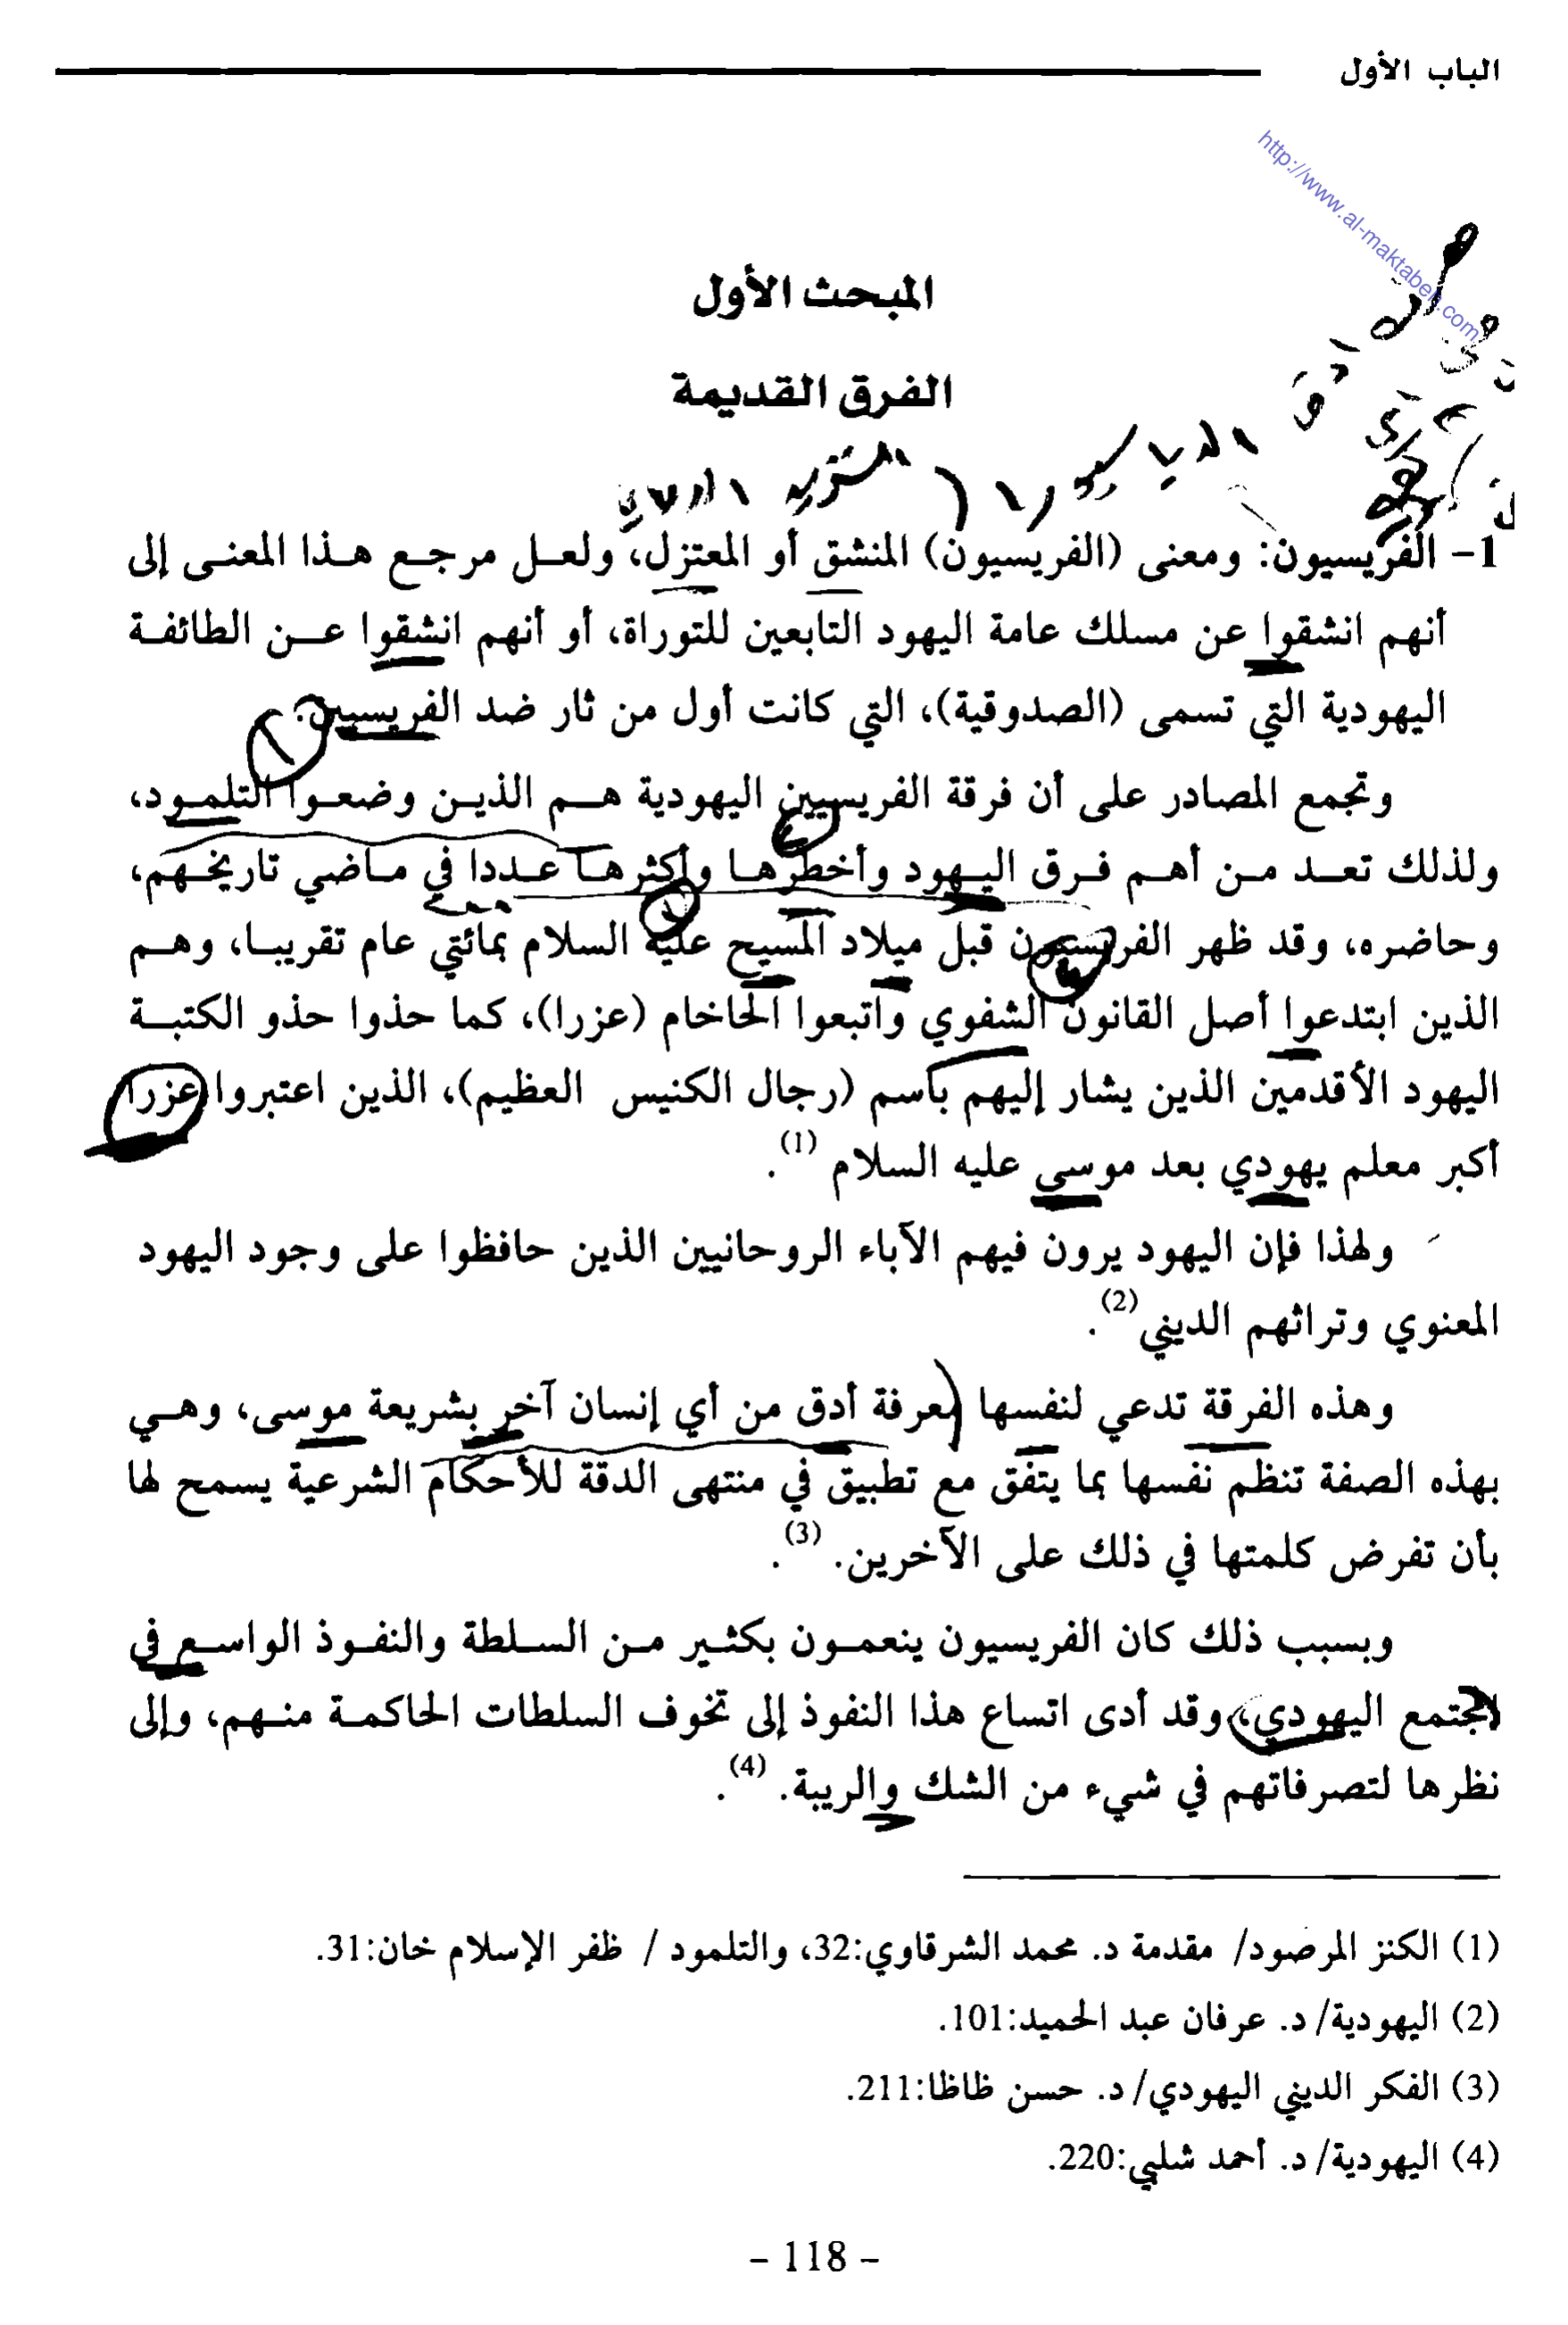 الباب الأول
http://www.al-maktabeh.com
المبحث الأول
الفرق القديمة
1- الفريسيون: ومعنى (الفريسيون) المنشق أو المعتزل، ولعل مرجع هذا المعنى إلى
أنهم انشقوا عن مسلك عامة اليهود التابعين للتوراة، أو أنهم انشقوا عن الطائفة
اليهودية التي تسمى (الصدوقية)، التي كانت أول من ثار ضد الفريسيين.
وتجمع المصادر على أن فرقة الفريسيين اليهودية هم الذين وضعوا التلمود،
ولذلك تعد من أهم فرق اليهود وأخطرها وأكثرها عددا في ماضي تاريخهم،
وحاضره، وقد ظهر الفريسيون قبل ميلاد المسيح عليه السلام بمائتي عام تقريبا، وهم
الذين ابتدعوا أصل القانون الشفوي واتبعوا الحاخام (عزرا)، كما حذوا حذو الكتبة
اليهود الأقدمين الذين يشار إليهم باسم (رجال الكنيس العظيم)، الذين اعتبروا عزرا
أكبر معلم يهودي بعد موسى عليه السلام (1).
ولهذا فإن اليهود يرون فيهم الآباء الروحانيين الذين حافظوا على وجود اليهود
المعنوي وتراثهم الديني(2).
وهذه الفرقة تدعي لنفسها معرفة أدق من أي إنسان آخر بشريعة موسى، وهي
بهذه الصفة تنظم نفسها بما يتفق مع تطبيق في منتهى الدقة للأحكام الشرعية يسمح لها
بأن تفرض كلمتها في ذلك على الآخرين. (3).
وبسبب ذلك كان الفريسيون ينعمون بكثير من السلطة والنفوذ الواسع في
المجتمع اليهودي، وقد أدى اتساع هذا النفوذ إلى تخوف السلطات الحاكمة منهم، وإلى
نظرها لتصرفاتهم في شيء من الشك والريبة. (4).
(1) الكنز المرصود/ مقدمة د. محمد الشرقاوي:32، والتلمود / ظفر الإسلام خان:31.
(2) اليهودية/ د. عرفان عبد الحميد:101.
(3) الفكر الديني اليهودي/ د. حسن ظاظا:211.
(4) اليهودية/ د. أحمد شلبي:220.
- 118 -